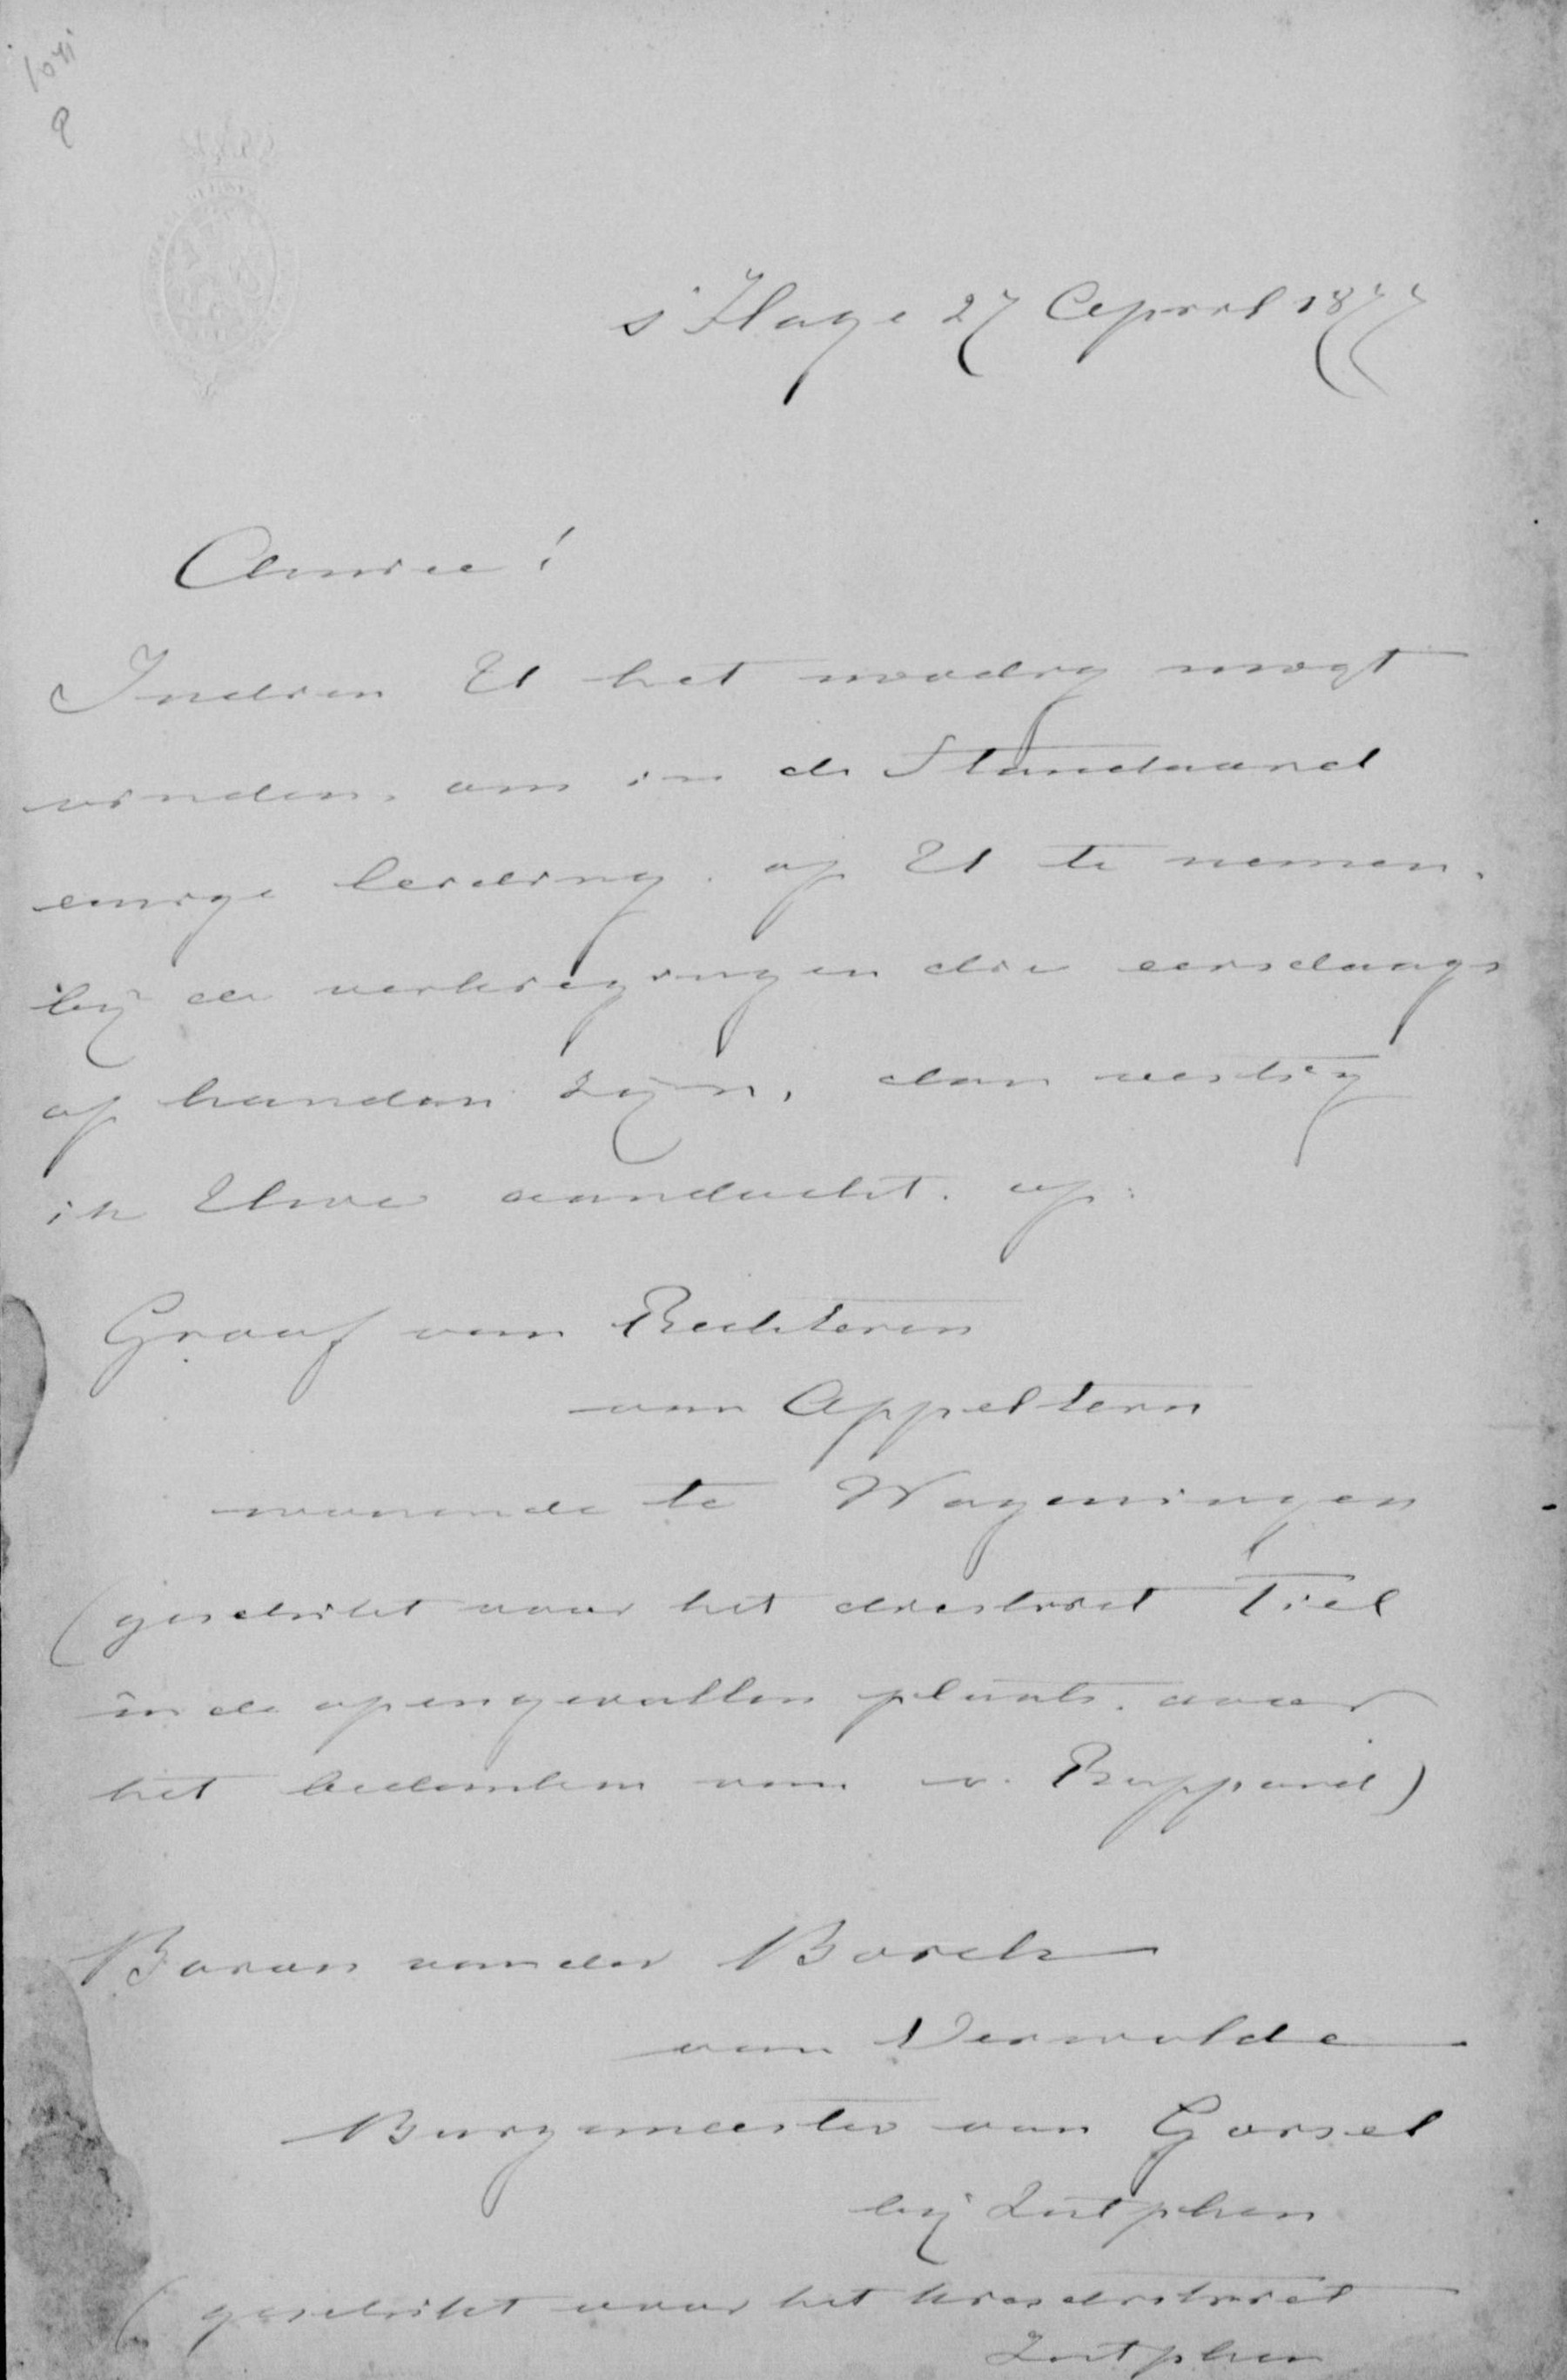 s'Hage 27 April 1877
Amice!
Indien U het noodig mogt
vinden, om in de Standaard
eenige leiding op U te nemen,
bij de verkiezingen die eersdaags
op handen zijn, dan vestig
ik Uwe aandacht op:
Graaf van Rechteren
van Appeltern
wonende te Wageningen
(geschikt voor het district Tiel
in de opengevallen plaats door
het bedanken van v. Rappard)
Baron van der Borch
van Verwolde
Burgemeester van Gorsel
bij Zutphen
(geschikt voor het kiesdistrict
Zutphen